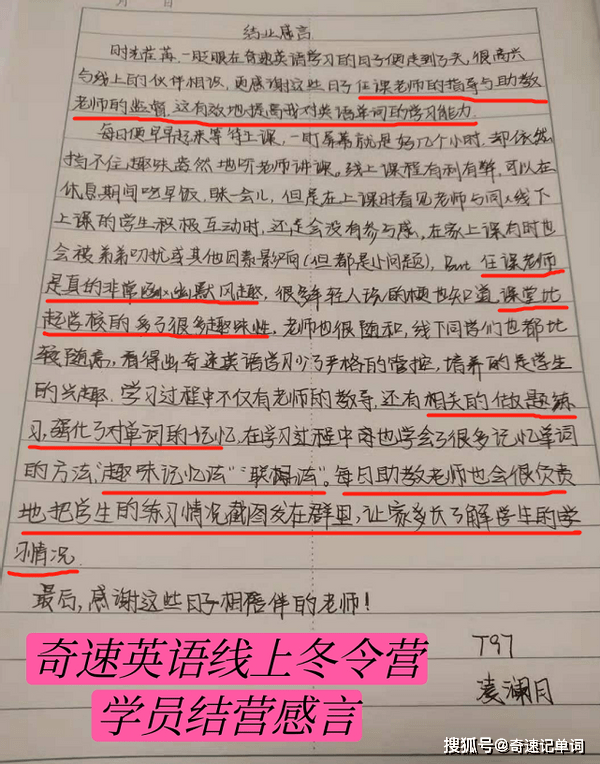 结业感言
时光荏苒,一眨眼在奇速英语学习的日子便走到了天,很高兴
与线上的伙伴相识,更感谢这些日子任课老师的指导与助教
老师的监督,这有效地提高我对英语单词的学习能力
每日便早早起来等待上课,一盯屏幕就是好几个小时,却依然
挡不住趣味盎然地听老师讲课。线上课程有利有弊,可以在
休息期间吃早饭,眯一会儿,但是在上课时看见老师与同人线下
上课的学生积极互动时,还是会没有参与感,在家上课有时也
会被弟弟叨扰或其他因素影响(但都是小问题),But 任课老师
是真的非常幽默风趣,很多年轻人玩的梗也知道,课堂比
起学校的多了很多趣味性,老师也很随和,线下同学们也都比
较随意,看得出奇速英语学习少了严格的管控,培养的是学生
的兴趣.学习过程中不仅有老师的教导,还有相关的做题练
习,强化了对单词的记忆,在学习过程中也学会了很多记忆单词
的方法,"趣味记忆法""联想法"。每日助教老师也会很负责
地把学生的练习情况截图发在群里,让家长了解学生的学
习情况
最后,感谢这些日子相陪伴的老师!
T97
凌澜月
奇速英语线上冬令营
学员结营感言
搜狐号@奇速记单词